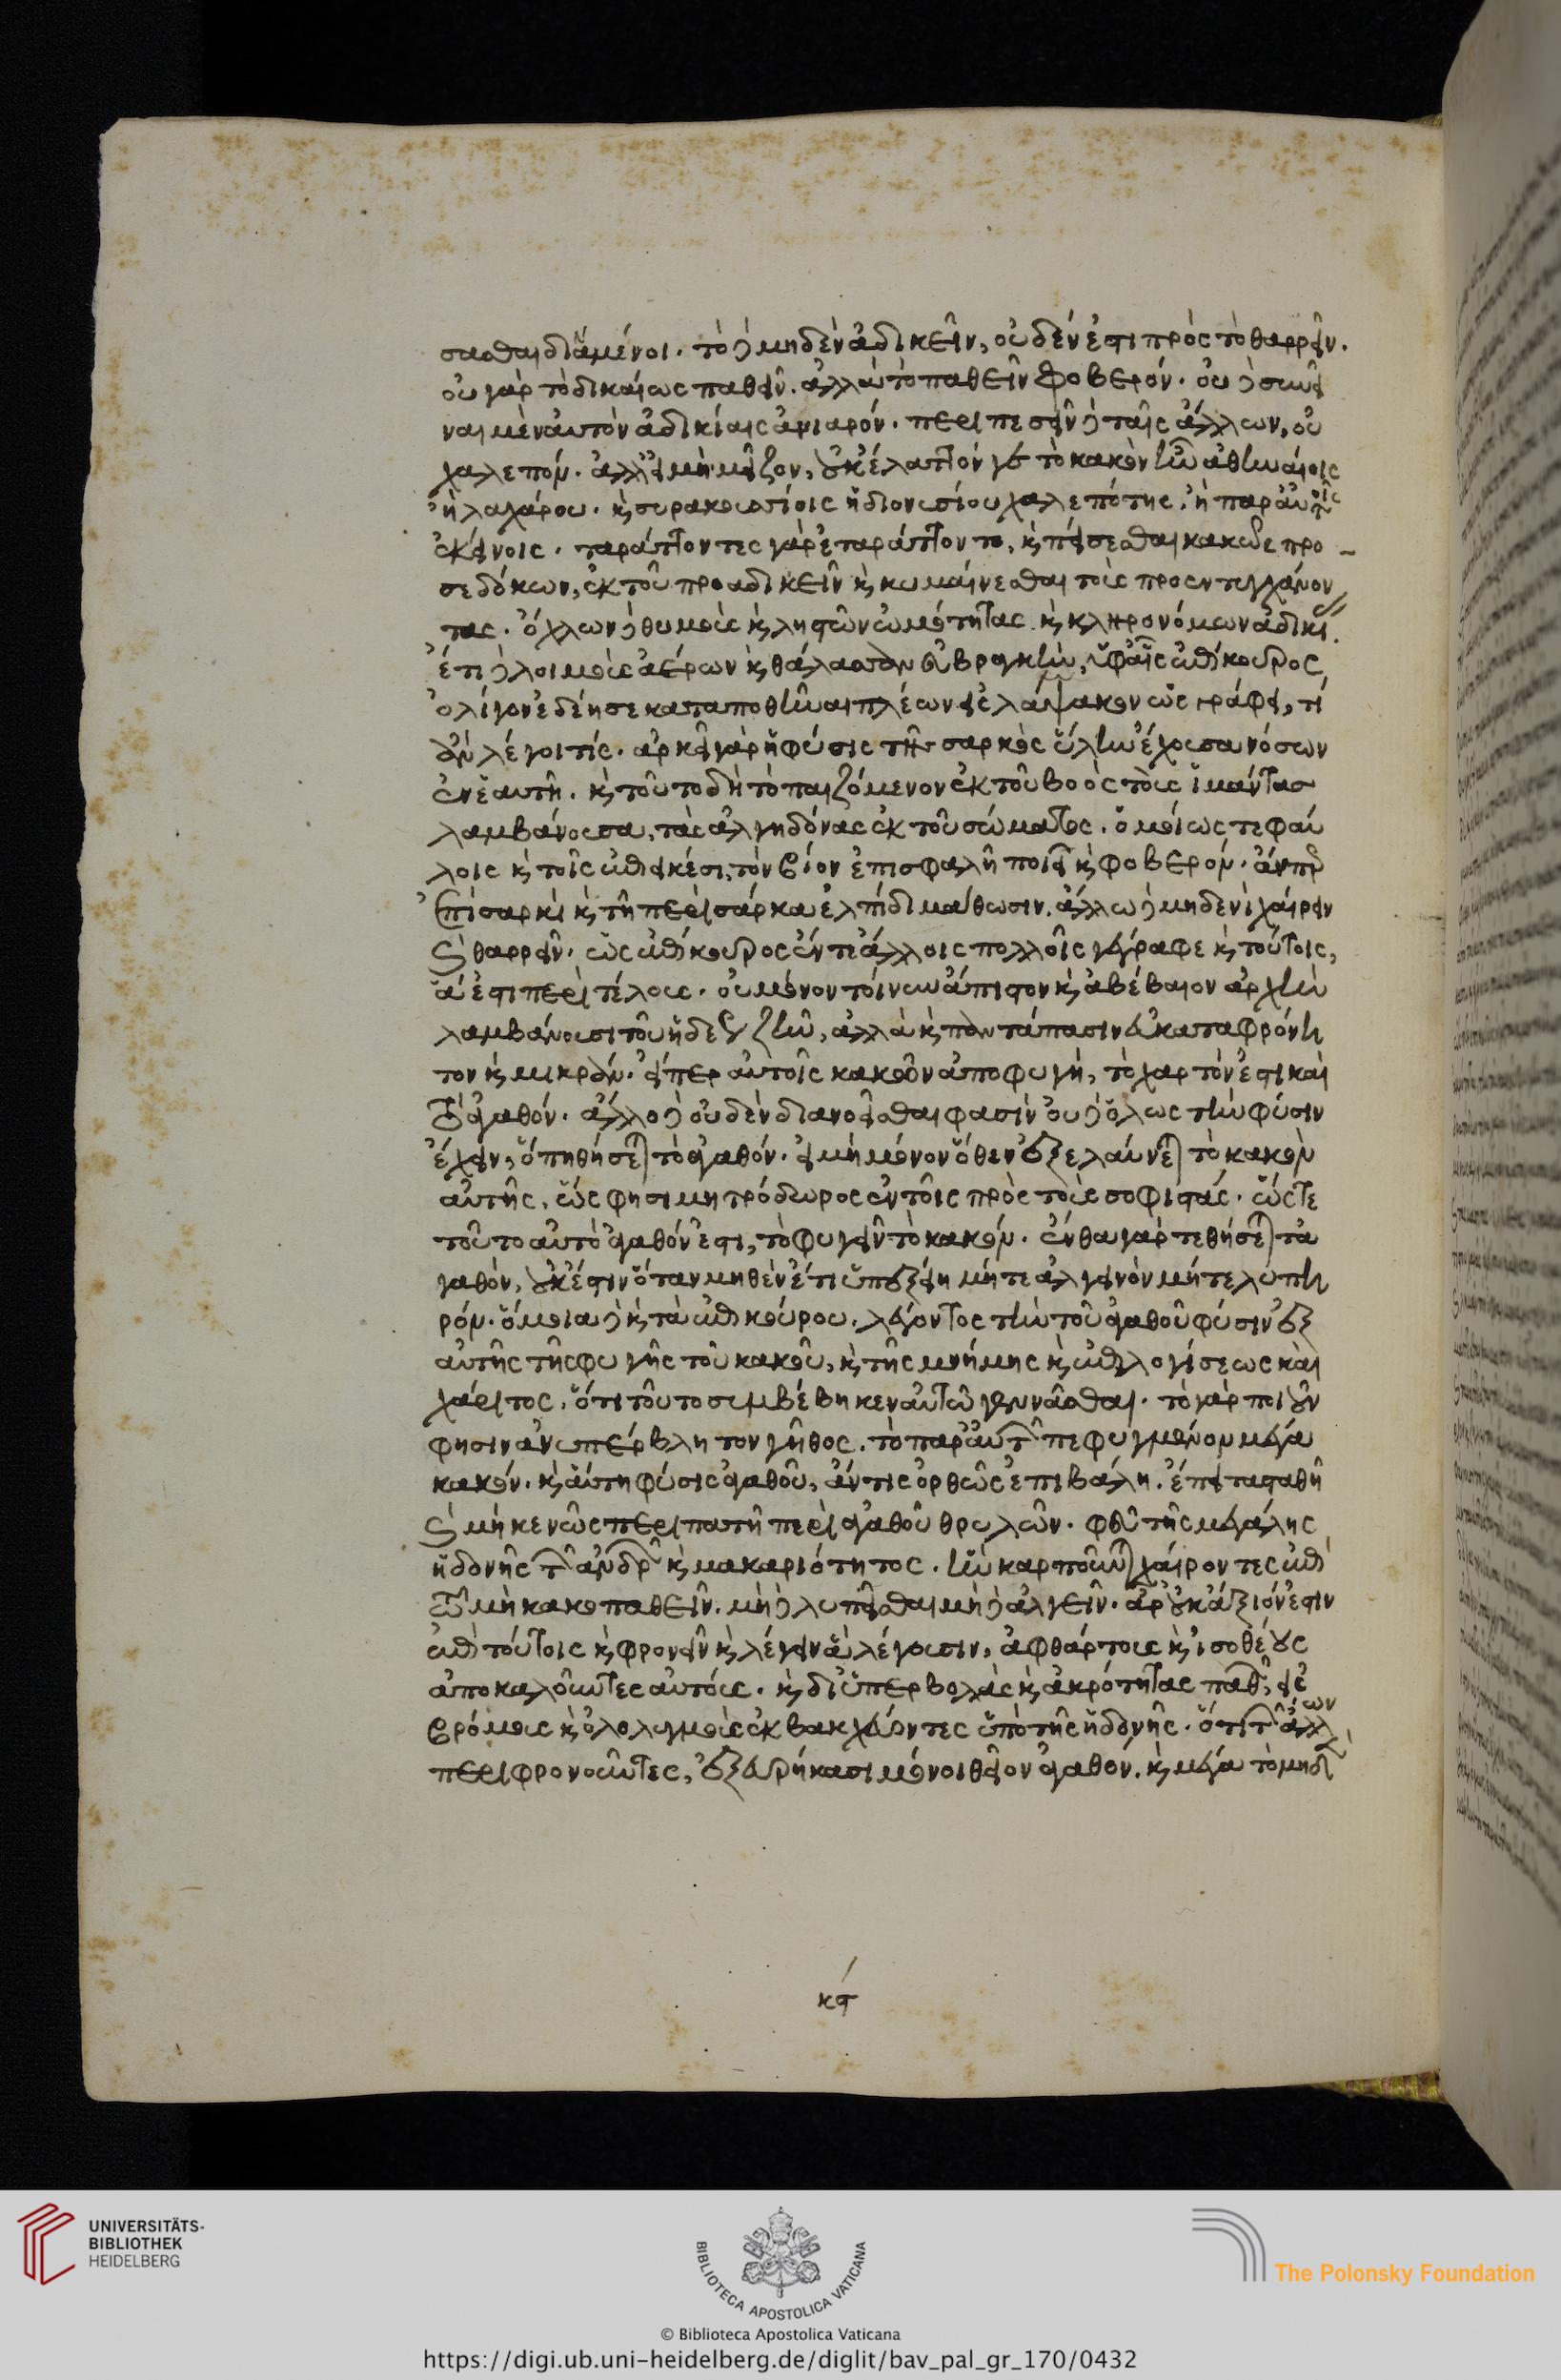 σασθαι δυνάμενοι. τὸ δὲ μηδὲν ἀδικεῖν, οὐδέν ἐστι πρὸς τὸ θαρρεῖν.
οὐ γὰρ τὸ δικαίως παθεῖν. ἀλλὰ τὸ παθεῖν φοβερόν. οὐ δὲ συνεῖ
ναι μὲν αὐτὸν ἀδικίαις ἀνιαρόν. περιπεσεῖν δὲ ταῖς ἄλλων, οὐ
χαλεπόν. ἀλλ' εἰ μὴ μεῖζον, οὐκ ἔλαττόν γε τὸ κακὸν ἦν ἀθηναίοις
ἡ λαχάρου. καὶ συρακουσίοις ἡ διονυσίου χαλεπότης, ἢ παρ' αὐτοῖς
ἐκείνοις. ταράττοντες γὰρ ἐταράττοντο, καὶ πείσεσθαι κακῶς προ
σεδόκων, ἐκ τοῦ προαδικεῖν καὶ λυμαίνεσθαι τοὺς προεντυγχάνον
τας. ὄχλων δὲ θυμοὺς καὶ λῃστῶν ὠμότητας καὶ κληρονόμων ἀδικί
ἔτι δὲ λοιμοὺς ἀέρων καὶ θάλασσαν εὐβραγκὴν, ὑφ' ἧς ἐπίκουρος
ὀλίγον ἐδέησε καταποθῆναι πλέων εἰς λάμψακον ὡς γράφει, τί
ἂν λέγοι τίς. ἀρκεῖ γὰρ ἡ φύσις τῆς σαρκὸς ὕλην ἔχουσα νόσων
ἐν ἑαυτῇ. καὶ τοῦτο δὴ τὸ παιζόμενον ἐκ τοῦ βοὸς τοὺς ἱμάντας
λαμβάνουσα, τὰς ἀλγηδόνας ἐκ τοῦ σώματος. ὁμοίως τε φαύ
λοις καὶ τοῖς ἐπιεικέσι, τὸν βίον ἐπισφαλῆ ποιεῖ καὶ φοβερόν. ἄνπερ
ἐπὶ σαρκὶ καὶ τῇ περὶ σάρκα ἐλπίδι μάθωσιν. ἄλλῳ δὲ μηδενὶ χαίρειν
καὶ θαρρεῖν. ὡς ἐπίκουρος ἔν τε ἄλλοις πολλοῖς γέγραφε καὶ τούτοις,
ἅ ἐστι περὶ τέλους. οὐ μόνον τοίνυν ἄπιστον καὶ ἀβέβαιον ἀρχὴν
λαμβάνουσι τοῦ ἡδέως ζῆν, ἀλλὰ καὶ παντάπασιν εὐκαταφρόνη
τον καὶ μικράν. εἴπερ αὐτοῖς κακῶν ἀποφυγὴ, τὸ χαρτόν ἐστι καὶ
τὸ ἀγαθόν. ἄλλο δὲ οὐδὲν διανοεῖσθαι φασὶν οὐ δὲ ὅλως τὴν φύσιν
ἔχειν, ὅπη θήσεται τὸ ἀγαθόν. εἰ μὴ μόνον ὅθεν ἐξελαύνεται τὸ κακὸν
αὐτῆς, ὥς φησι μητρόδωρος ἐν τοῖς πρὸς τοὺς σοφιστάς. ὥστε
τοῦτο αὐτὸ ἀγαθόν ἐστι, τὸ φυγεῖν τὸ κακόν. ἔνθα γὰρ τεθήσεται τὰ
γαθὸν, οὐκ ἔστιν ὅταν μηθὲν ἔτι ὑπεξείη μήτε ἀλγεινὸν μήτε λυπη
ρόν. ὅμοια δὲ καὶ τὰ ἐπικούρου. λέγοντος τὴν τοῦ ἀγαθοῦ φύσιν ἐξ
αὐτῆς τῆς φυγῆς τοῦ κακοῦ, καὶ τῆς μνήμης καὶ ἐπιλογίσεως καὶ
χάριτος, ὅτι τοῦτο συμβέβηκεν αὐτῷ γεννᾶσθαι. τὸ γὰρ ποιοῦν
φησιν ἀνυπέρβλητον γῆθος. τὸ παρ' αὐτῶν πεφυγμένον μέγα
κακόν. καὶ αὕτη φύσις ἀγαθοῦ, ἄν τις ὀρθῶς ἐπιβάλῃ. ἔπειτα σταθῇ
καὶ μὴ κενῶς περιπατῇ περὶ ἀγαθοῦ θρυλῶν. φεῦ τῆς μεγάλης
ἡδονῆς τῶν ἀνδρῶν καὶ μακαριότητος. ἣν καρποῦνται χαίροντες ἐπὶ
τῷ μὴ κακοπαθεῖν. μὴ δὲ λυπεῖσθαι μὴ δὲ ἀλγεῖν. ἆρ' οὐκ ἄξιόν ἐστιν
ἐπὶ τούτοις καὶ φρονεῖν καὶ λέγειν ἃ λέγουσιν, ἀφθάρτους καὶ ἰσοθέους
ἀποκαλοῦντες αὐτούς. καὶ δι' ὑπερβολὰς καὶ ἀκρότητας παθῶν, εἰς
βρόμους καὶ ὀλολυγμοὺς ἐκβακχεύοντες ὑπὸ τῆς ἡδονῆς. ὅτι τῶν ἄλλων
περιφρονοῦντες, ἐξευρήκασι μόνοι θεῖον ἀγαθόν. καὶ μέγα τὸ μηδὲν
κϛ
UNIVERSITÄTS-
BIBLIOTHEK
HEIDELBERG
BIBLIOTECA APOSTOLICA VATICANA
The Polonsky Foundation
© Biblioteca Apostolica Vaticana
https://digi.ub.uni-heidelberg.de/diglit/bav_pal_gr_170/0432